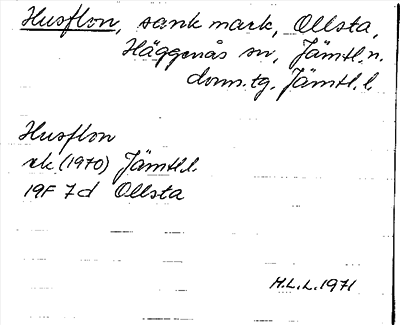 Husflon, sank mark, Ollsta,
Häggenås sn, Jämtl. n.
doms.tg. Jämtl. l.
Husflon
ek (1970) Jämtl.l.
19F 7d Ollsta
H.L.L. 1971